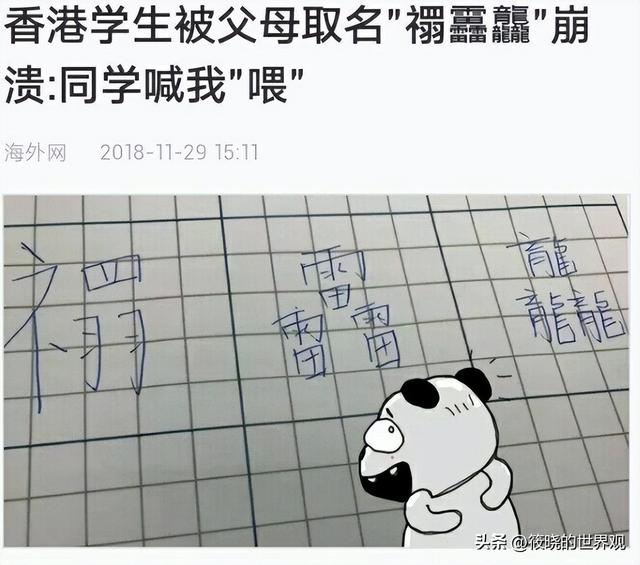 香港学生被父母取名"禤靐龘"崩
溃:同学喊我"喂"
海外网 2018-11-29 15:11
禤 靐 龘
头条 @筱晓的世界观